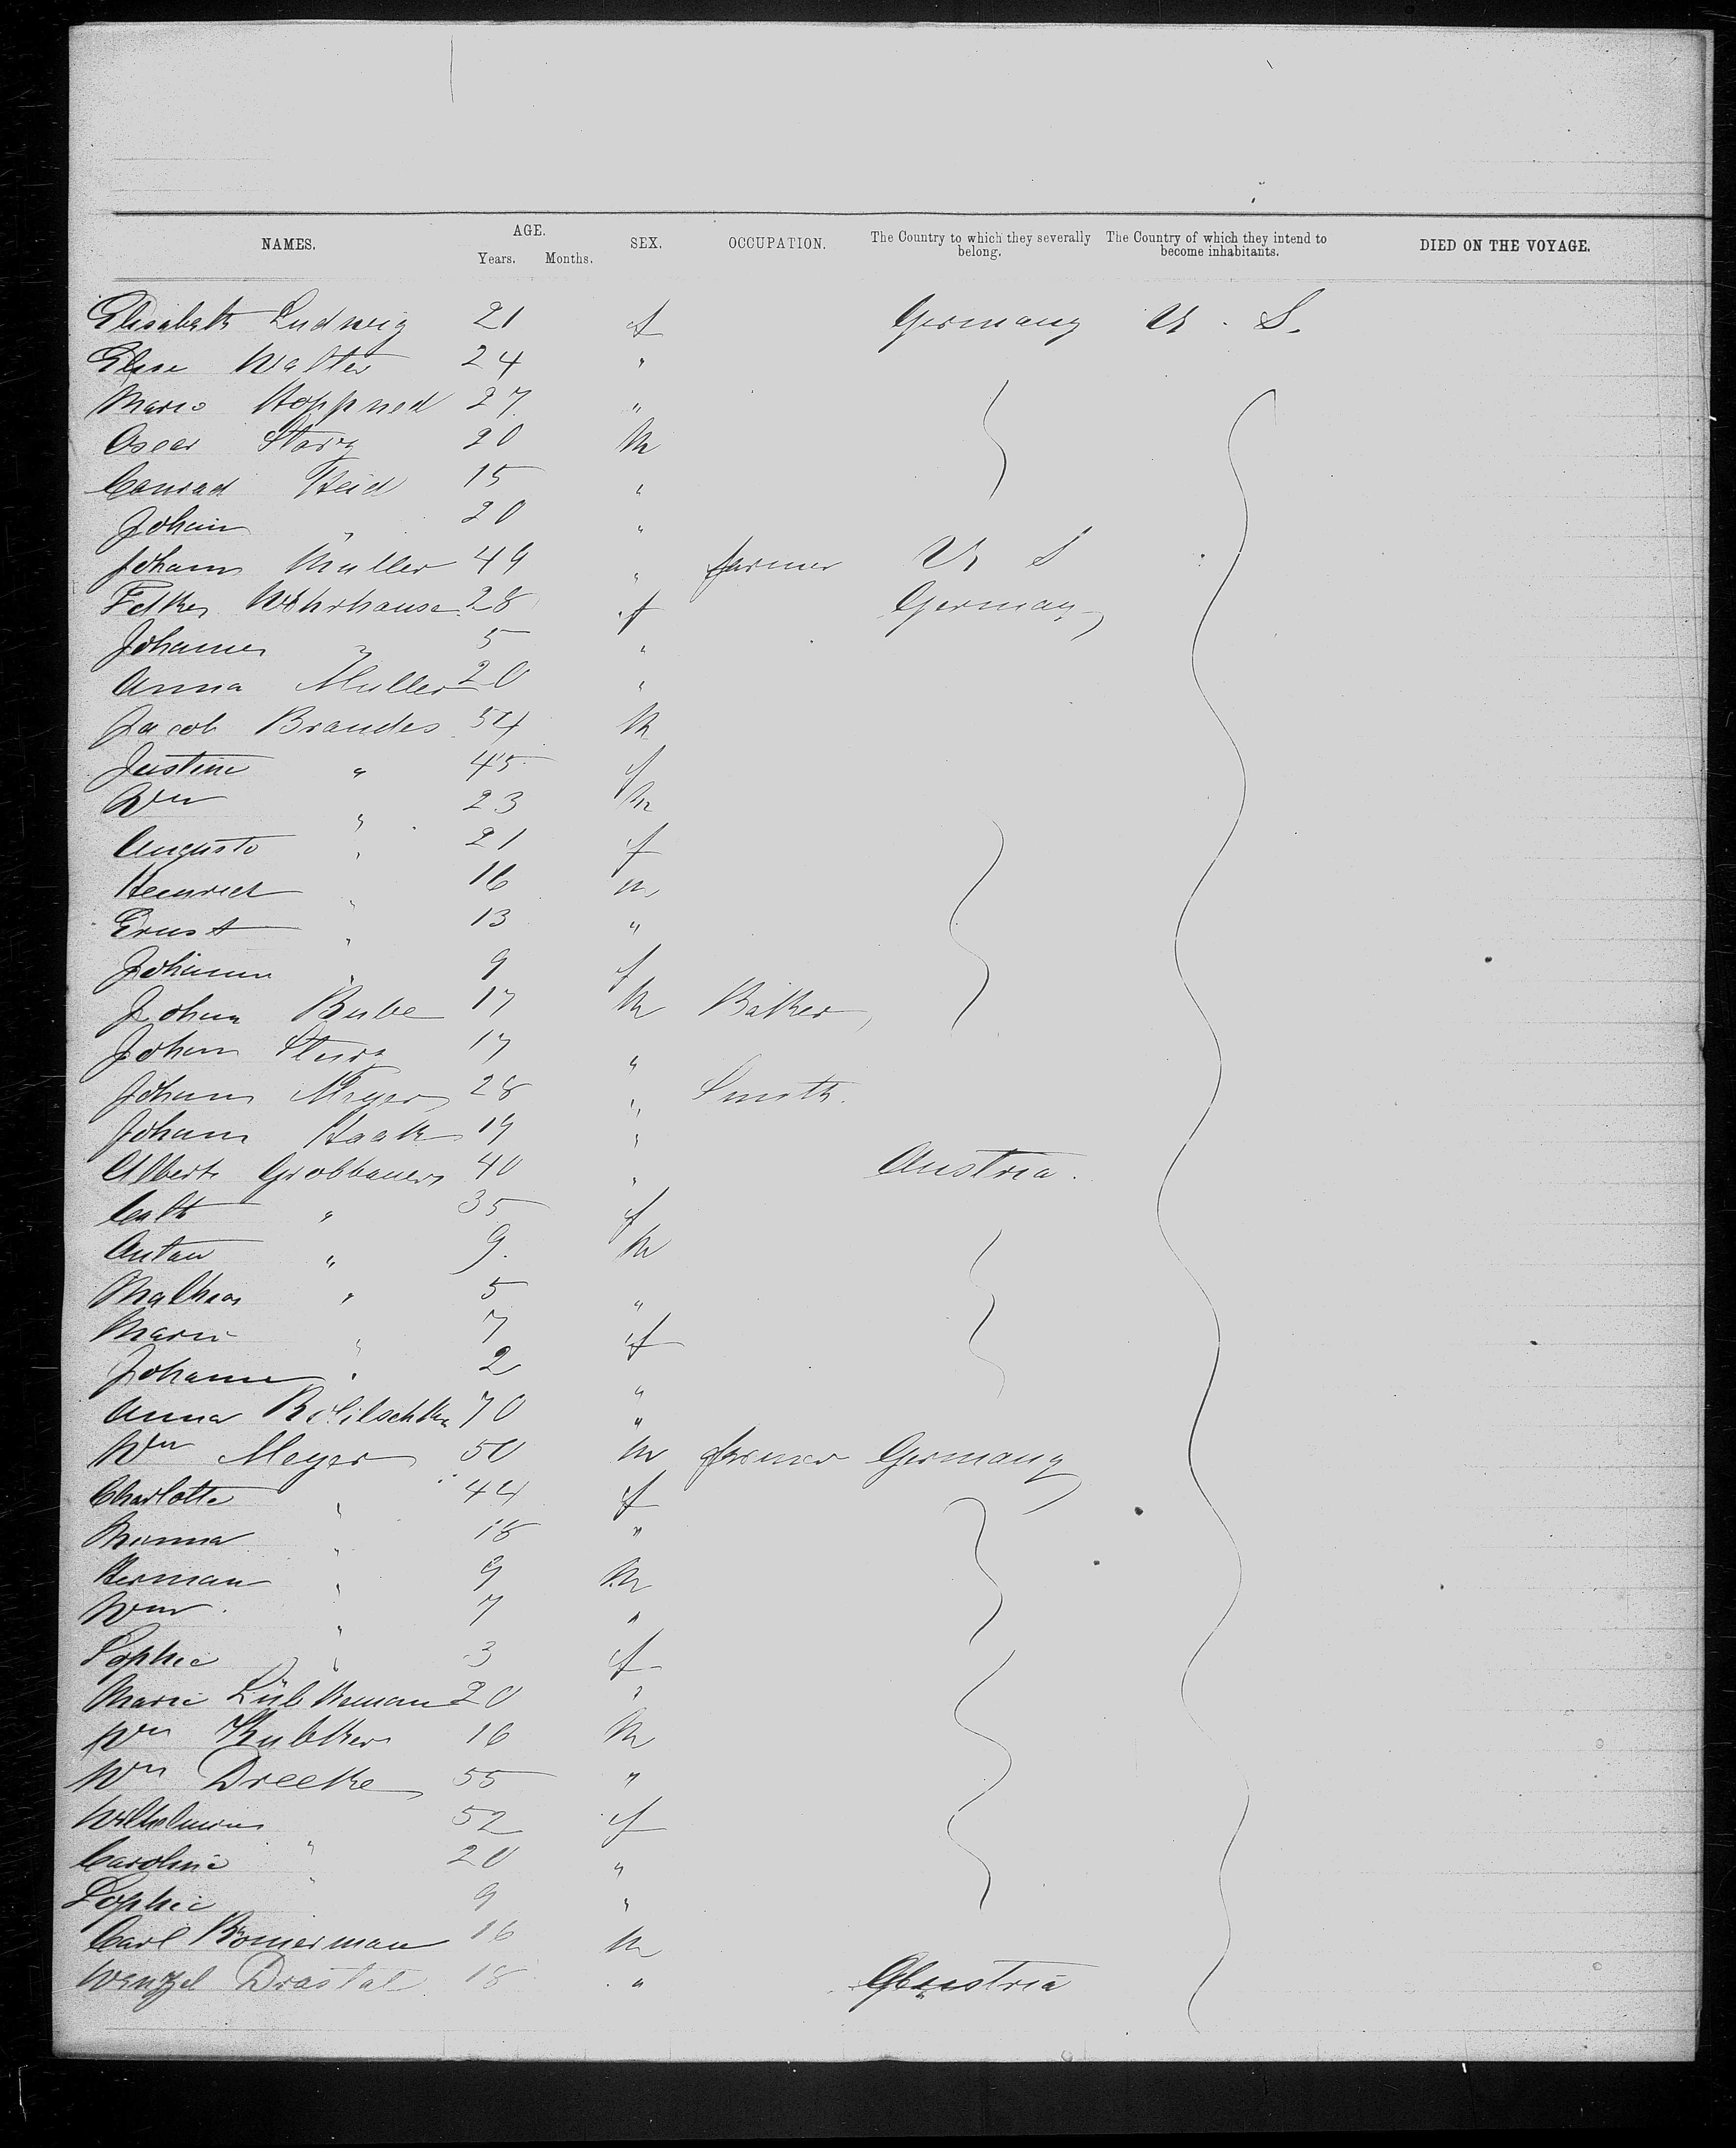 NAMES. AGE. Years. Months. SEX. OCCUPATION. The Country to which they severally belong. The Country of which they intend to become inhabitants. DIED ON THE VOYAGE.
Elisabeth Ludwig 21 f Germany U. S.
Elise Walter 24 "
Marie 27 "
Oscar 20 m
Conrad Heid 15 "
Johann " 20 "
Johann Muller 49 " farmer U S
28 f Germany
Johannes " 5 "
Anna Muller 20 "
Jacob Brandes 54 m
Justine " 45 f
Wm " 23 m
Auguste " 21 f
Heinrich " 16 m
Ernst " 13 "
Johanne " 9 f
Johann Bube 17 m Baker
Johann 17 "
Johann Meyer 28 " Smith.
Johann Haak 19 "
Albert Grobbauer 40 " Austria.
Cath " 35 f
Anton " 9. m
Mathias " 5 "
Marie " 7 f
Johanne " 2 "
Anna 70 "
Wm Meyer 50 m farmer Germany
Charlotte " 44 f
Minna " 18 "
Herman " 9 m
Wm. " 7 "
Sophie " 3 f
Marie Lübkeman 20 "
Wm 16 m
Wm Dreeke 55 "
Wilhelmine 52 f
Caroline " 20 "
Sophie " 9 "
Carl 16 m
Wenzel Drastal 18 " Austria